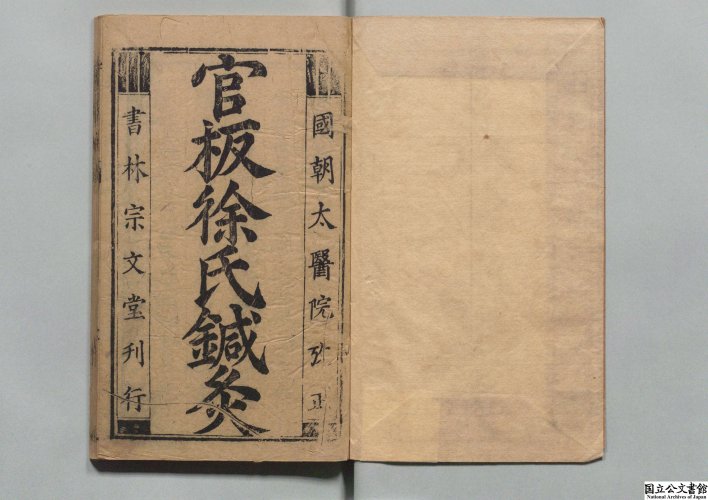 國朝太醫院攷正
官板徐氏鍼灸
書林宗文堂刊行
国立公文書館
National Archives of Japan